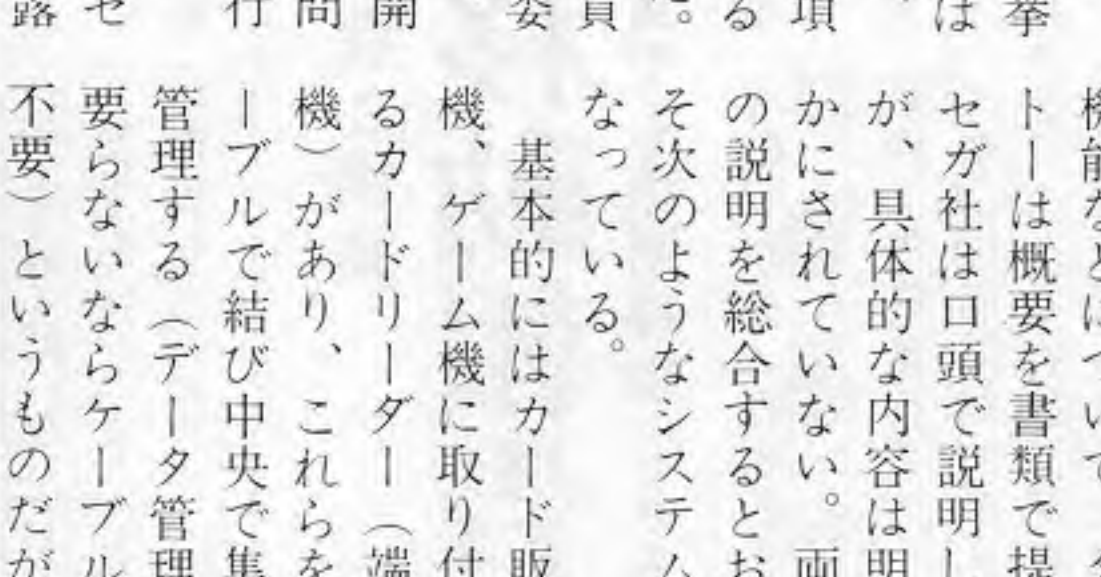 挙
は
項
る
。
員
委
開
問
行
セ
機能などについて
トーは概要を書類で提
セガ社は口頭で説明し
が、具体的な内容は明
かにされていない。両
の説明を総合するとお
そ次のようなシステム
なっている。
基本的にはカード販
機、ゲーム機に取り付
るカードリーダー（端
機）があり、これらを
ーブルで結び中央で集
管理する（データ管理
要らないならケーブル
不要）というものだが